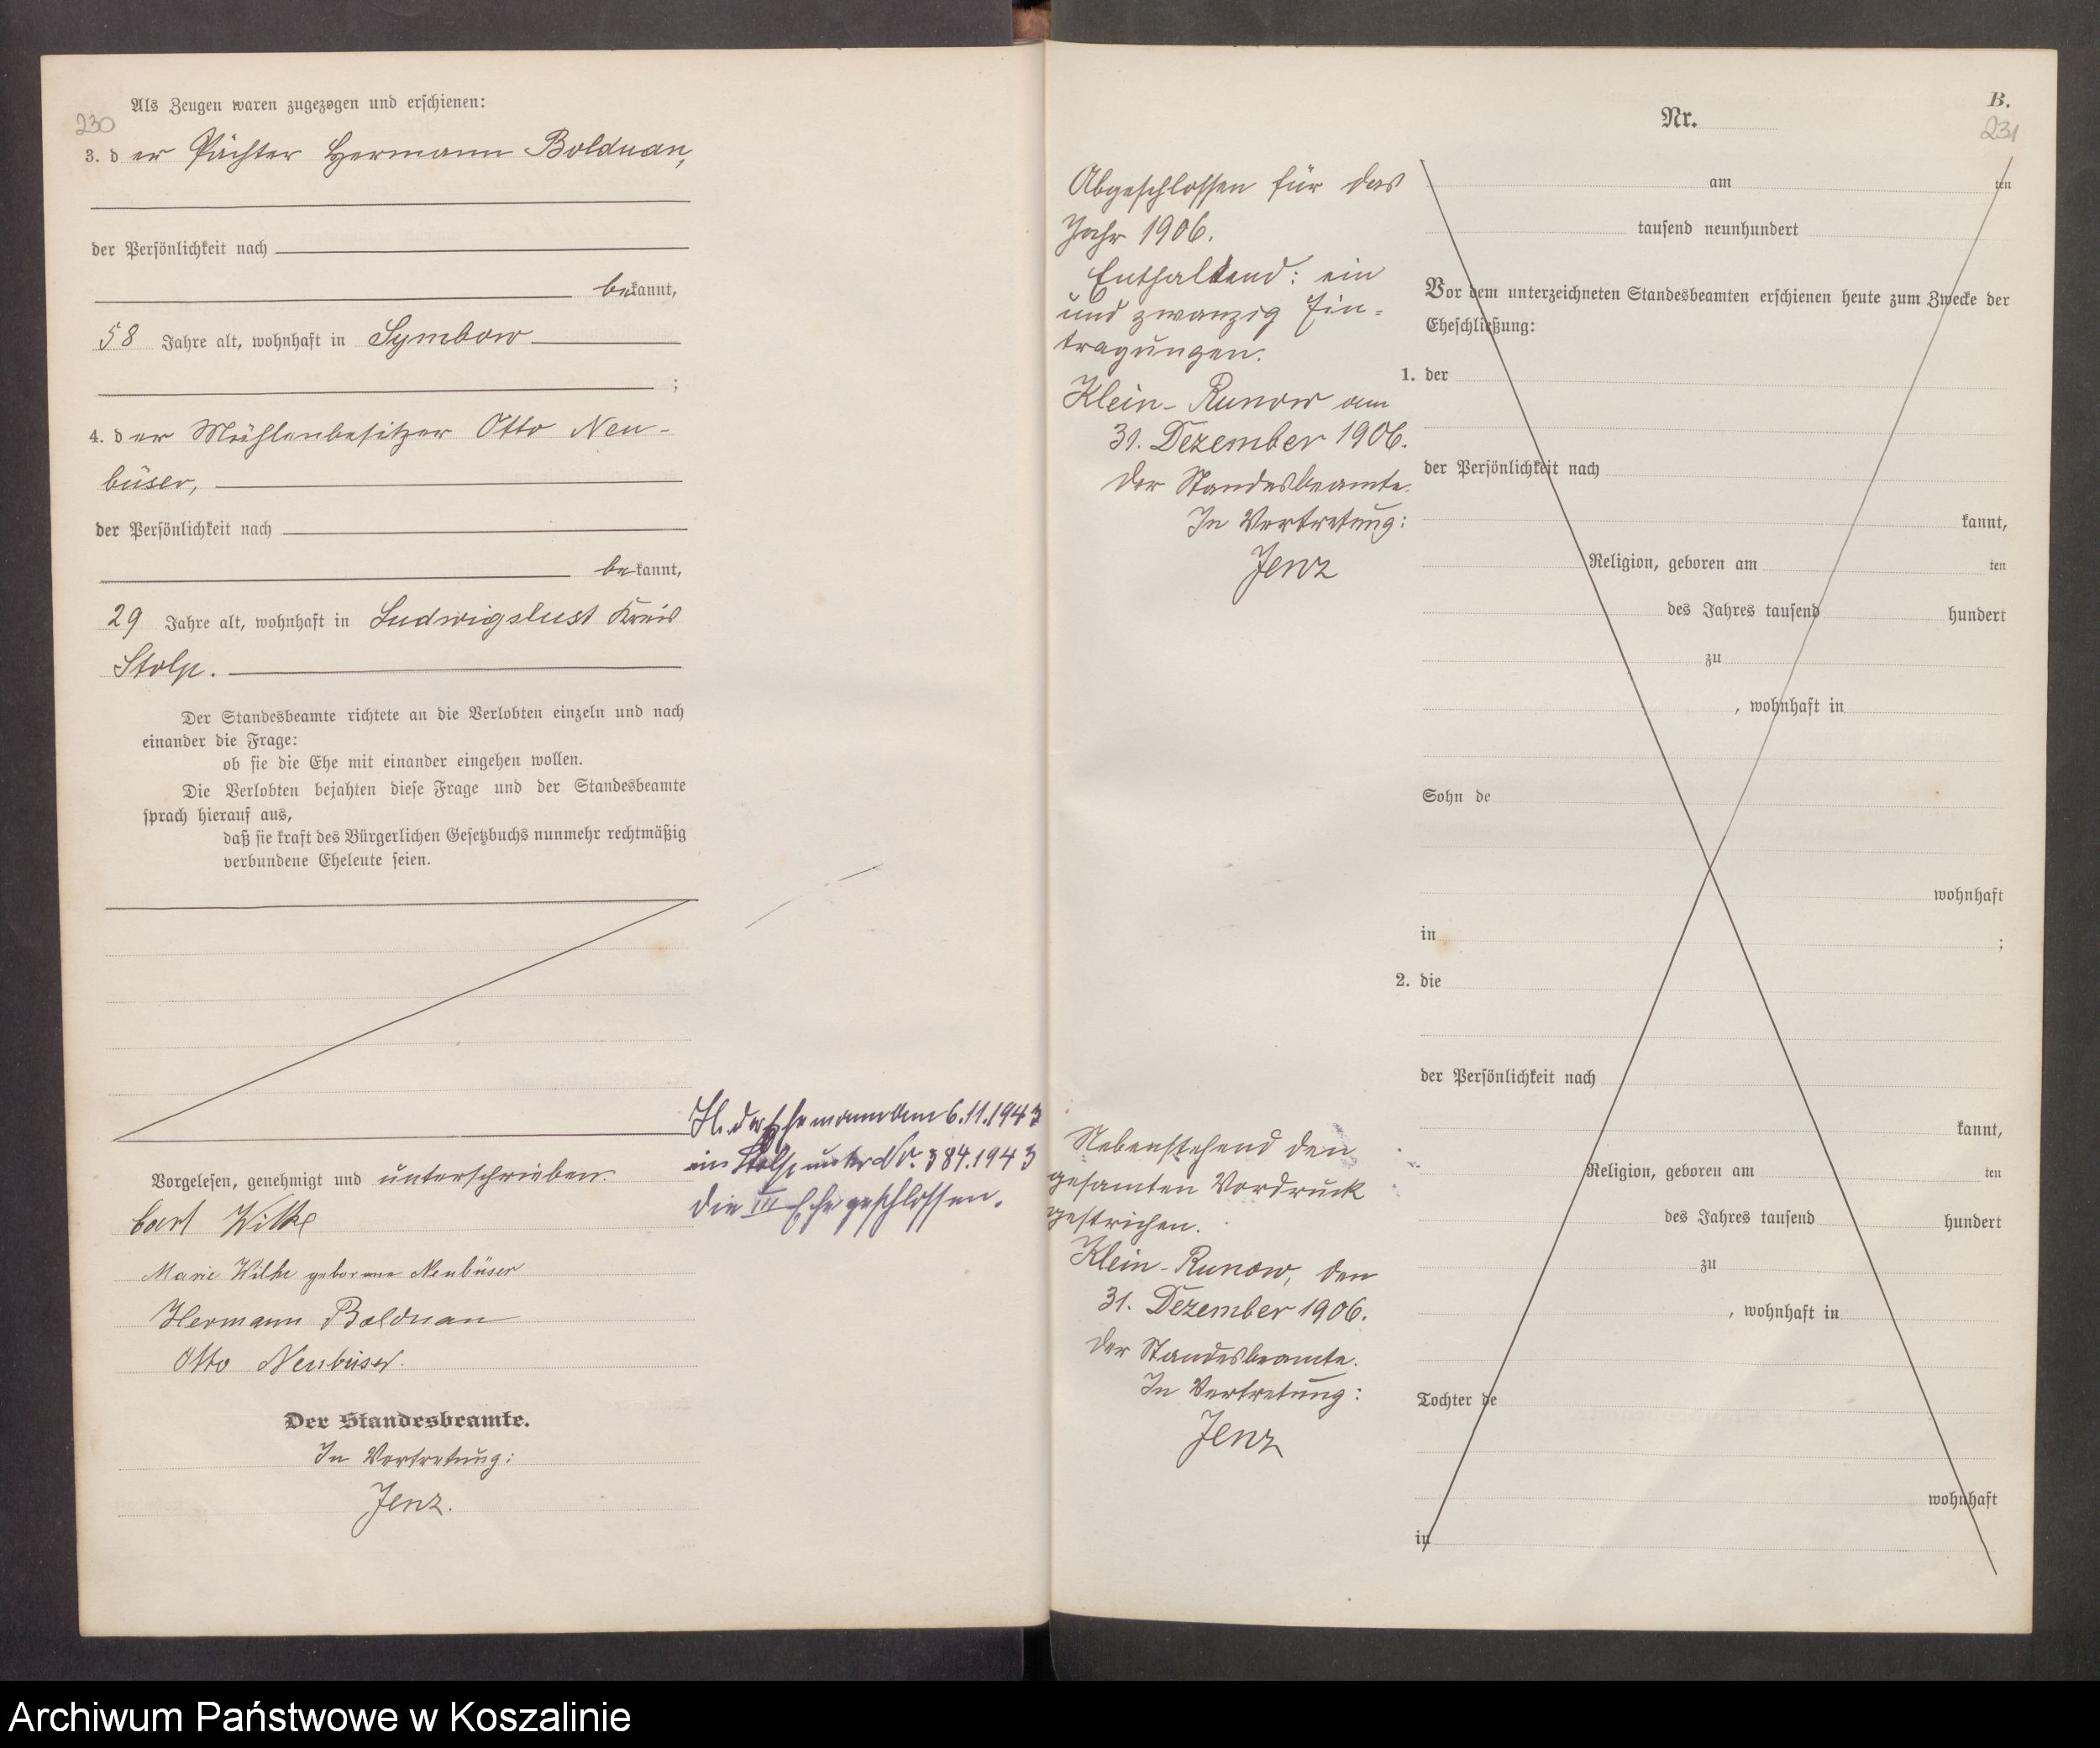 230
Als Zeugen waren zugezogen und erschienen:
3. der Pächter Hermann Bolduan,
der Persönlichkeit nach
bekannt,
58 Jahre alt, wohnhaft in Symbow
;
4. der Mühlenbesitzer Otto Neu-
büser,
der Persönlichkeit nach
bekannt,
29 Jahre alt, wohnhaft in Ludwigslust Kreis
Stolp.
Der Standesbeamte richtete an die Verlobten einzeln und nach
einander die Frage:
ob sie die Ehe mit einander eingehen wollen.
Die Verlobten bejahten diese Frage und der Standesbeamte
sprach hierauf aus,
daß sie kraft des Bürgerlichen Gesetzbuchs nunmehr rechtmäßig
verbundene Eheleute seien.
Vorgelesen, genehmigt und unterschrieben.
Carl Wilke
Marie Wilke geborene Neubüser
Hermann Bolduan
Otto Neubüser.
Der Standesbeamte.
In Vertretung:
Jenz.
der Ehemann am 6.11.1943
in Stolp unter Nr. 384.1943
die III Ehe geschlossen.
B.
231
Nr.
Abgeschlossen für das
Jahr 1906.
Enthaltend: ein
und zwanzig Ein=
tragungen.
Klein-Runow am
31. Dezember 1906.
Der Standesbeamte.
In Vertretung:
Jenz
Nebenstehend den
gesamten Vordruck
gestrichen.
Klein-Runow, den
31. Dezember 1906.
Der Standesbeamte.
In Vertretung:
Jenz
am ten
tausend neunhundert
Vor dem unterzeichneten Standesbeamten erschienen heute zum Zwecke der
Eheschließung:
1. der
der Persönlichkeit nach
kannt,
Religion, geboren am ten
des Jahres tausend hundert
zu
, wohnhaft in
Sohn de
wohnhaft
in ;
2. die
der Persönlichkeit nach
kannt,
Religion, geboren am ten
des Jahres tausend hundert
zu
, wohnhaft in
Tochter de
wohnhaft
in
Archiwum Państwowe w Koszalinie